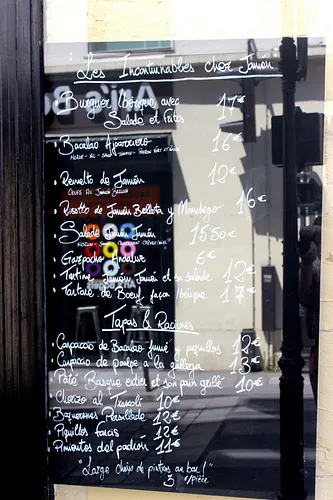 Les Incontournables chez Jamón
Burguer Iberque avec
Salade et frites 17€
Bacalao Ajoarriero 16€
Revuelto de Jamón 12€
Oeufs au Jamón Bellota
Risotto de Jamón Bellota y Manchego 16€
Salade Jamón Jamón 15.50€
Gazpacho Andaluz 6€
Tartine Jamón Jamón et sa salade 12€
Tartare de Boeuf façon Ibérique 17€
Tapas & Raciones
Carpaccio de Bacalao fumé y piquillos 12€
Carpaccio de Poulpe a la gallega 13€
Pâté Basque entier et son pain grillé 10€
Chorizo al Txakoli 10€
Encornets Persillade 12€
Piquillos farcis 12€
Pimientos del padrón 11€
"Largo choix de pintxos au bar!"
3€/pièce